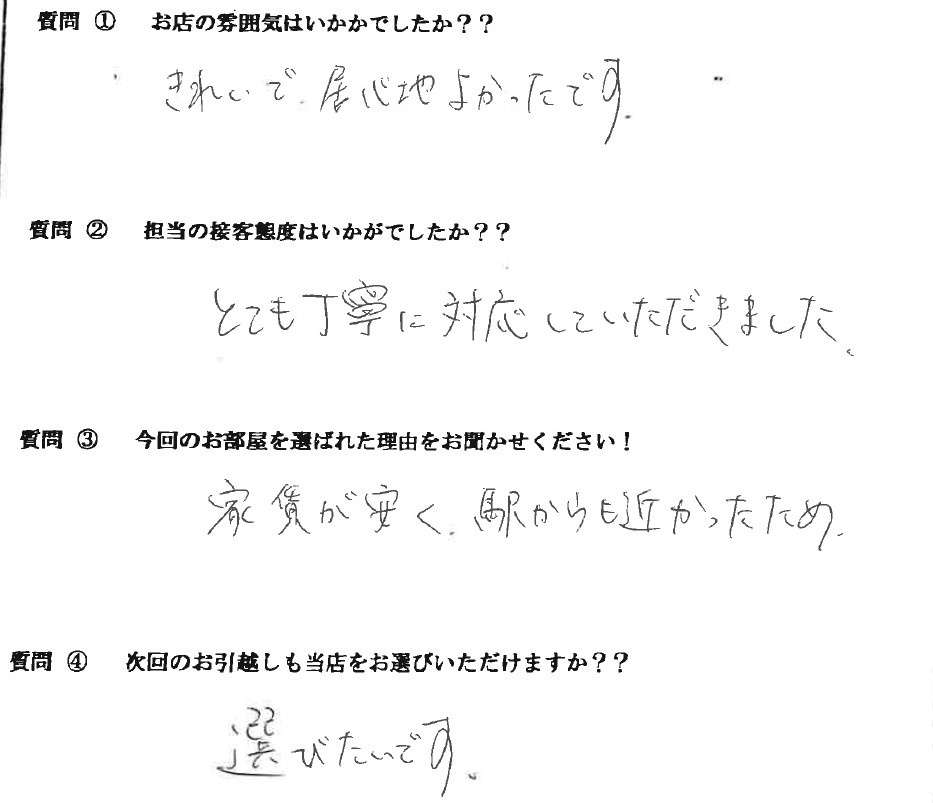 質問 ① お店の雰囲気はいかかでしたか？？
きれいで、居心地よかったです。
質問 ② 担当の接客態度はいかがでしたか？？
とても丁寧に対応していただきました。
質問 ③ 今回のお部屋を選ばれた理由をお聞かせください！
家賃が安く、駅からも近かったため。
質問 ④ 次回のお引越しも当店をお選びいただけますか？？
選びたいです。